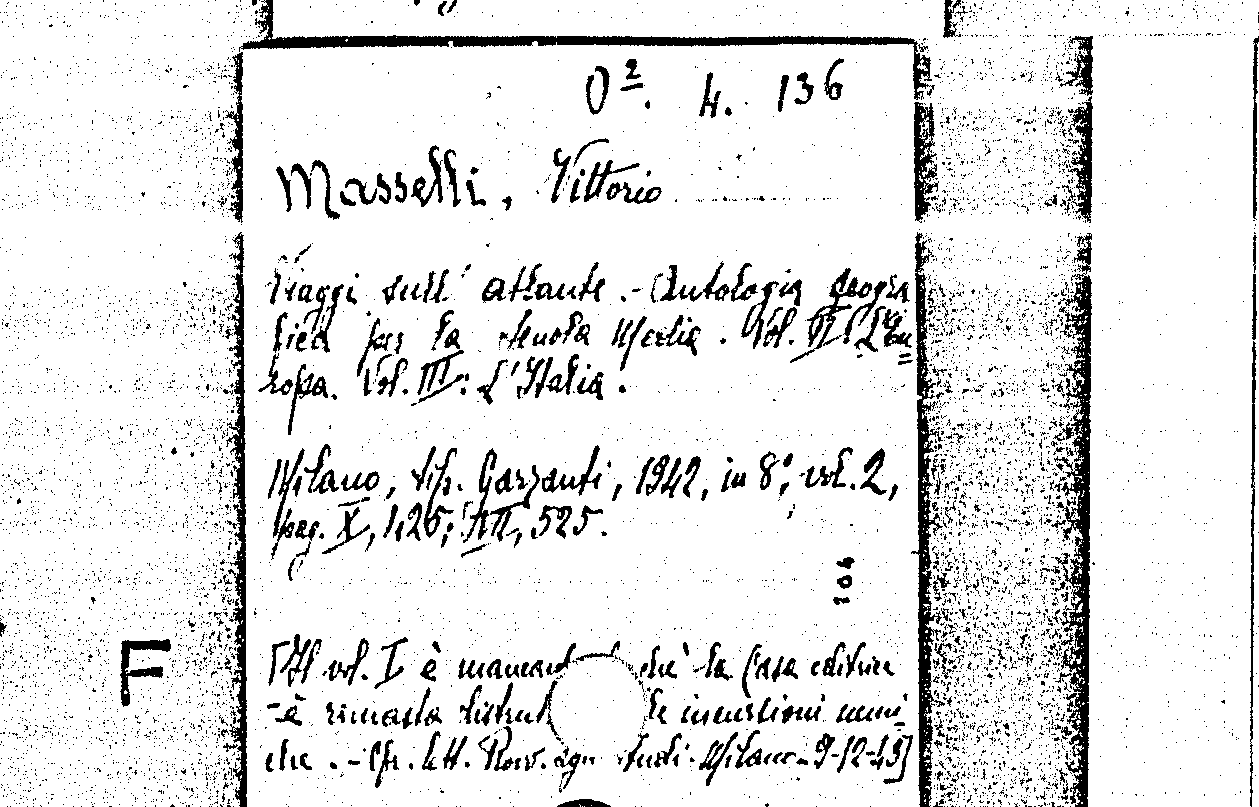 O². 4. 136
Masselli, Vittorio
Viaggi sull' atlante. - Antologia geogra
fica per la scuola Media. Vol. II: L'Eu=
ropa. Vol. III: L'Italia.
Milano, tip. Garzanti, 1942, in 8°, vol. 2,
pag. X, 425; 525.
104
[Il vol. I è la Casa editrice
è rimasta incursioni nemi-
che. - Cfr. lett. Provv. agli studi. Milano - 9-12-43]
F